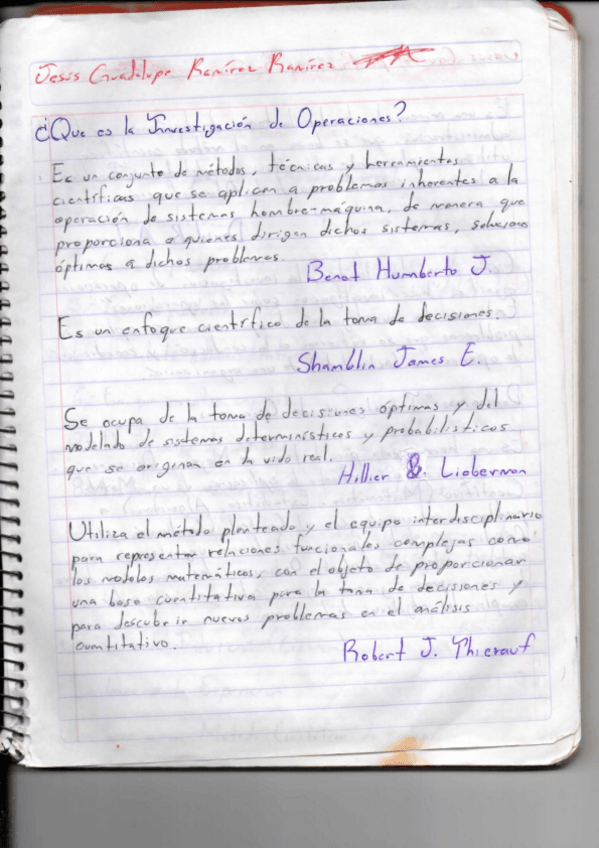 Jesús Guadalupe Ramírez Ramírez
¿Que es la Investigación de Operaciones?
Es un conjunto de métodos, técnicas y herramientas
científicas que se aplican a problemas inherentes a la
operación de sistemas hombre-máquina, de manera que
proporciona a quienes dirigen dichos sistemas, soluciones
óptimas a dichos problemas.
Humberto J.
Es un enfoque científico de la toma de decisiones.
Shamblin James E.
Se ocupa de la toma de decisiones óptimas y del
modelado de sistemas determinísticos y probabilisticos
que se originan en la vida real.
Hillier & Lieberman
Utiliza el método planteado y el equipo interdisciplinario
para representar relaciones funcionales complejas como
los modelos matemáticos, con el objeto de proporcionar
una base cuantitativa para la toma de decisiones y
para descubrir nuevos problemas en el análisis
cuantitativo.
Robert J. Thierauf